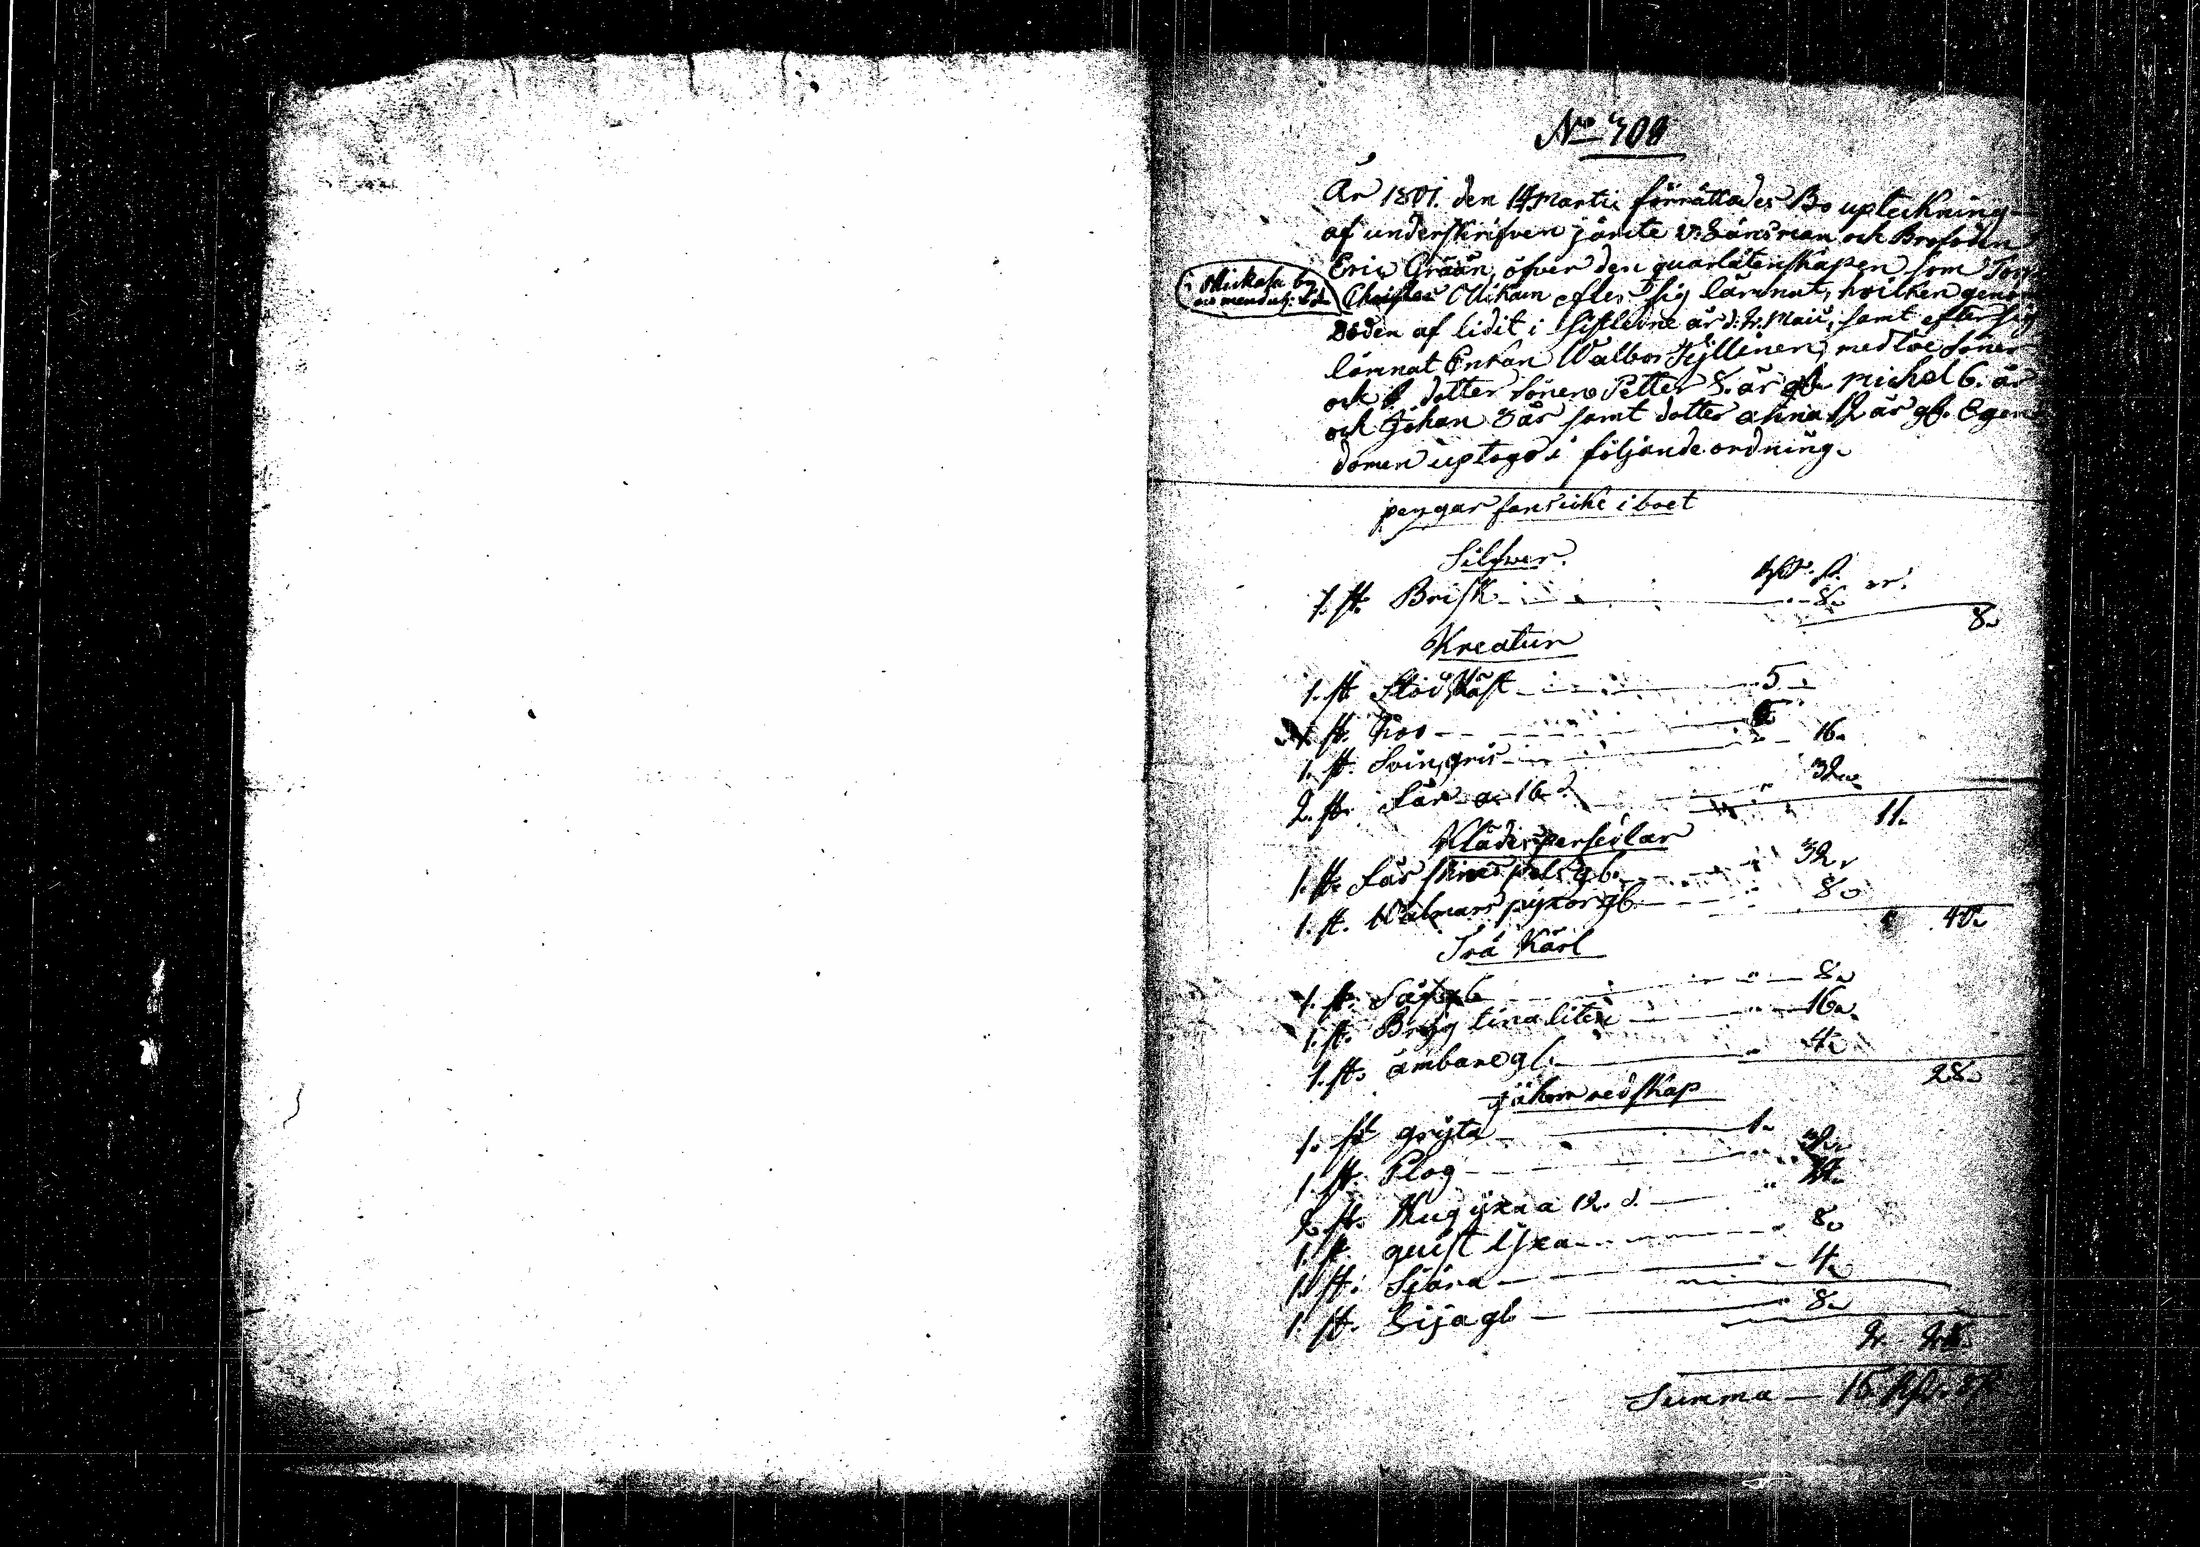 No 409
År 1801. den 14 Martii förrättades Bo upteckning
af underskrifven jämte v. Länsman och Brofogden
Eric Grään, öfver den quarlåtenskapen som Torp
i Mickala by
Ollikain efter sig lämnat, hvilken genom
Döden af lidit i sistledne år d: 4. Maii, samt efter sig
lämnat Enkan Walbor Hyllinen, med toe söner
och dotter sönerne Petter 8. år gl. Michel 6. år
och Johan 3 år samt dotter Anna 12 år gl. Egen
domen uptogs i följande ordning.
pengar fans icke i boet
Silfver.
Rdr. s. rr.
1. st. Brisk 8. 8.
Kreatur
1. st. Stod Häst 5
st. Koo
1. st. Svin gris 16.
2. st. Får a 16 s. 32.
11.
Klädes persedlar
1. st. Får skins pels gl. 32.
1. st. Walmars pyxor gl. 8.
40.
Trä Kärl
1. st. Så gl 8.
1. st. Bryg tina liten 16.
1. st. ämbare gl. 4.
28.
jähern redskap
1. st gryta 1.
1. st. Plog 32.
2. st. Hug yxa a 12. s. 24.
1. st. quist yxa 8.
1. st. Skära 4.
1. st. Lija gl 8.
Summa 15 Rdr.